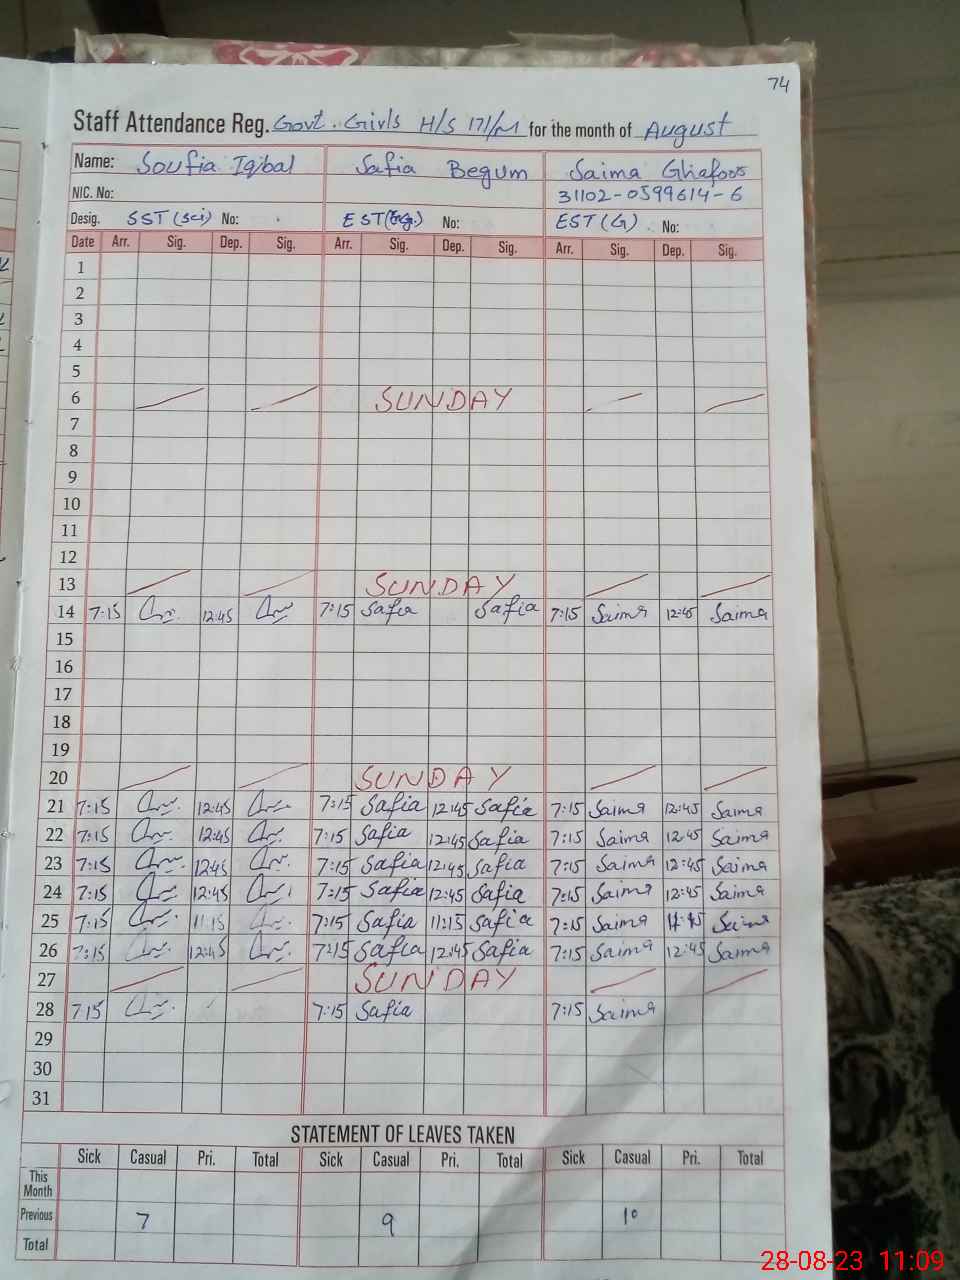 74
Staff Attendance Reg. Govt. Girls H/S 171/M for the month of August
Name: Soufia Iqbal Safia Begum Saima Ghafoor
NIC. No: 31102-0599614-6
Desig. SST (sci) No: EST (Eng.) No: EST (G) No:
Date Arr. Sig. Dep. Sig. Arr. Sig. Dep. Sig. Arr. Sig. Dep. Sig.
1
2
3
4
5
6 SUNDAY
7
8
9
10
11
12
13 SUNDAY
14 7:15 12:45 7:15 Safia Safia 7:15 Saima 12:45 Saima
15
16
17
18
19
20 SUNDAY
21 7:15 12:45 7:15 Safia 12:45 Safia 7:15 Saima 12:45 Saima
22 7:15 12:45 7:15 Safia 12:45 Safia 7:15 Saima 12:45 Saima
23 7:15 12:45 7:15 Safia 12:45 Safia 7:15 Saima 12:45 Saima
24 7:15 12:45 7:15 Safia 12:45 Safia 7:15 Saima 12:45 Saima
25 7:15 11:15 7:15 Safia 11:15 Safia 7:15 Saima Saima
26 7:15 12:45 7:15 Safia 12:45 Safia 7:15 Saima 12:45 Saima
27 SUNDAY
28 7:15 7:15 Safia 7:15 Saima
29
30
31
STATEMENT OF LEAVES TAKEN
Sick Casual Pri. Total Sick Casual Pri. Total Sick Casual Pri. Total
This
Month
Previous 7 9 10
Total
28-08-23 11:09